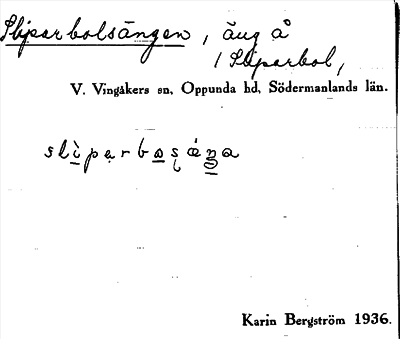 Sliparbolsängen, äng å
/ Sliparbol,
V. Vingåkers sn, Oppunda hd, Södermanlands län.
slìparbosǽŋa
Karin Bergström 1936.